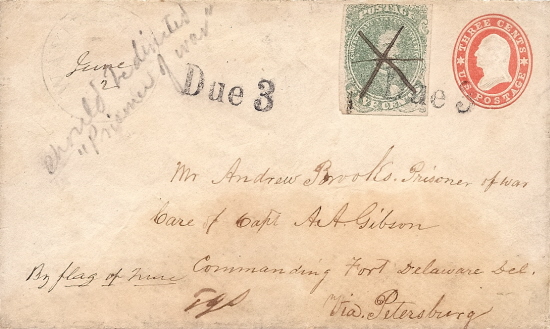 June
2
should be directed
"Prisoner of war"
Due 3
POSTAGE
THREE CENTS
U.S. POSTAGE
ue 3
Mr Andrew Brooks. Prisoner of war
Care of Capt A.A. Gibson
Commanding Fort Delaware Del.
By flag of truce
Via. Petersburg